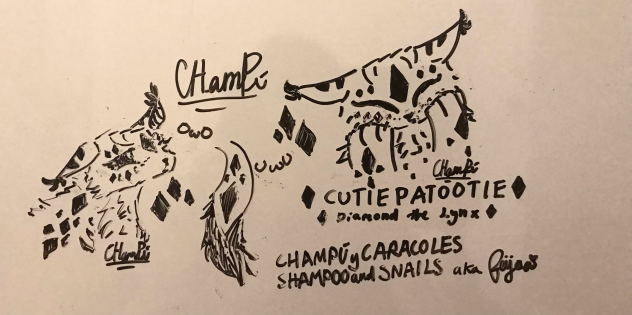 CHamPú
OwO
UwU
CHamPú
CHamPú
CUTIE PATOOTIE
Diamond the Lynx
CHAMPÚ y CARACOLES
SHAMPOO and SNAILS aka